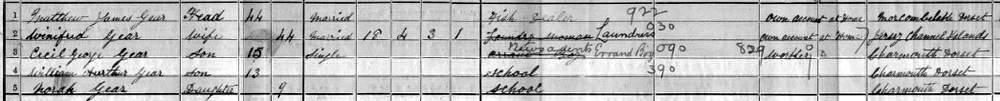 1 Matthew James Gear Head 44 Married Fish Dealer 922 own account at Home Morcombelake Dorset
2 Winifred Gear Wife 44 Married 18 4 3 1 Laundry woman Laundress 930 own account at Home Jersey Channel Islands
3 Cecil George Gear Son 15 Single errand Boy Newsagents Errand Boy 090 829 Worker Charmouth Dorset
4 William Arthur Gear Son 13 School 390 Charmouth Dorset
5 Norah Gear Daughter 9 School Charmouth Dorset